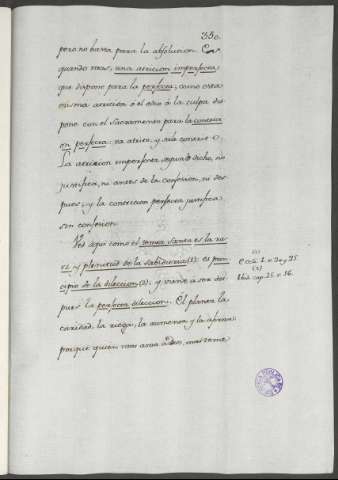 350.
pero no basta para la absolucion. Es,
quando mas, una atricion imperfecta,
que dispone para la perfecta; como esta
misma atricion ó el odio à la culpa dis
pone con el Sacramento para la contrici
on perfecta: no atrito, y sale contrito.
La atricion imperfecta, segun lo dicho, no
justifica, ni antes de la confesion, ni des
pues; y la contricion perfecta justifica
sin confesion.
Ves aqui como el temor santo es la ra
iz, y plenitud de la sabiduria (1): es prin
cipio de la dileccion (2): y viene a ser des
pues la perfecta dileccion. El planta la
caridad, la riega, la aumenta y la afirma:
porque quien mas ama a Dios, mas teme
(1)
Eccli. 1. v. 20 y 25.
(2)
Ibid. cap. 25. v. 16.